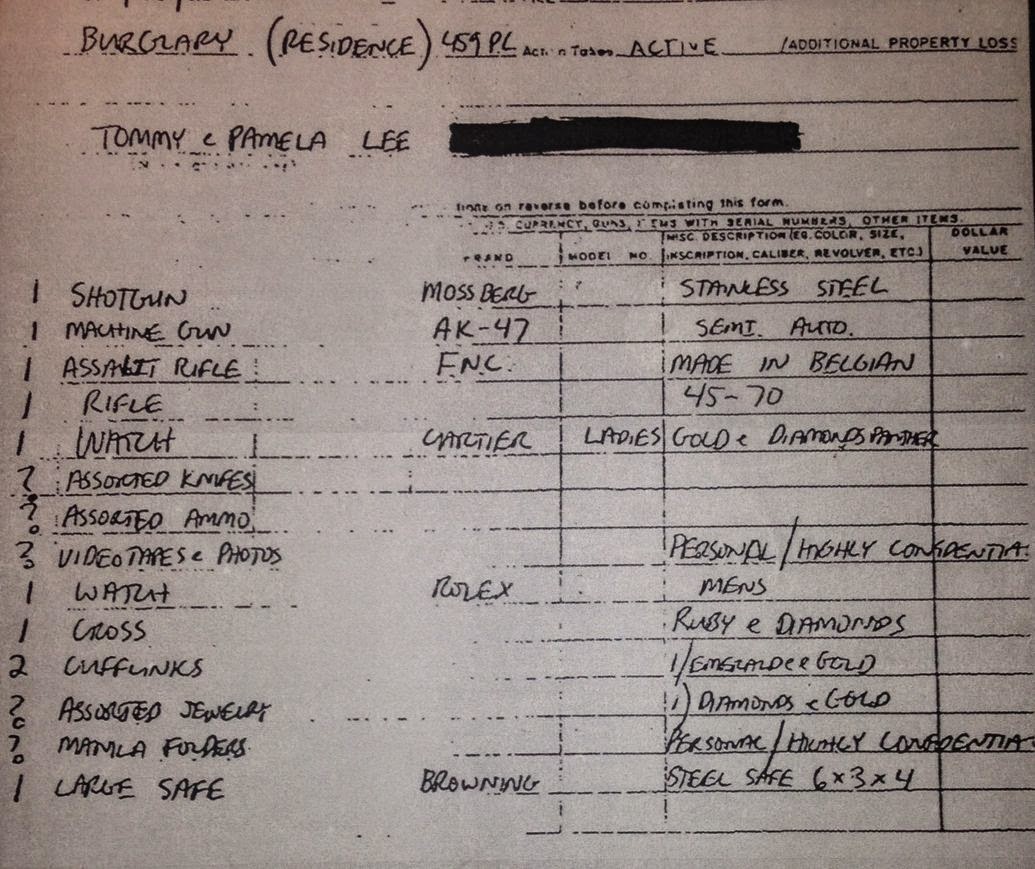 BURGLARY (RESIDENCE) 459 PC Action Taken ACTIVE /ADDITIONAL PROPERTY LOSS
TOMMY & PAMELA LEE
on reverse before completing this form.
CURRENCY, GUNS, ITEMS WITH SERIAL NUMBERS, OTHER ITEMS.
BRAND MODEL NO. MISC. DESCRIPTION (EG. COLOR, SIZE, INSCRIPTION, CALIBER, REVOLVER, ETC.) DOLLAR VALUE
1 SHOTGUN MOSSBERG STAINLESS STEEL
1 MACHINE GUN AK-47 SEMI. AUTO.
1 ASSAULT RIFLE FNC. MADE IN BELGIAN
1 RIFLE 45-70
1 WATCH CARTIER LADIES GOLD & DIAMONDS PANTHER
? ASSORTED KNIFES
? ASSORTED AMMO
3 VIDEO TAPES & PHOTOS PERSONAL/HIGHLY CONFIDENTIA
1 WATCH ROLEX MENS
1 CROSS RUBY & DIAMONDS
2 CUFFLINKS 1/EMERALD & GOLD
? ASSORTED JEWELRY 1) DIAMONDS & GOLD
? MANILA FOLDERS PERSONAL/HIGHLY CONFIDENTIA
1 LARGE SAFE BROWNING STEEL SAFE 6x3x4